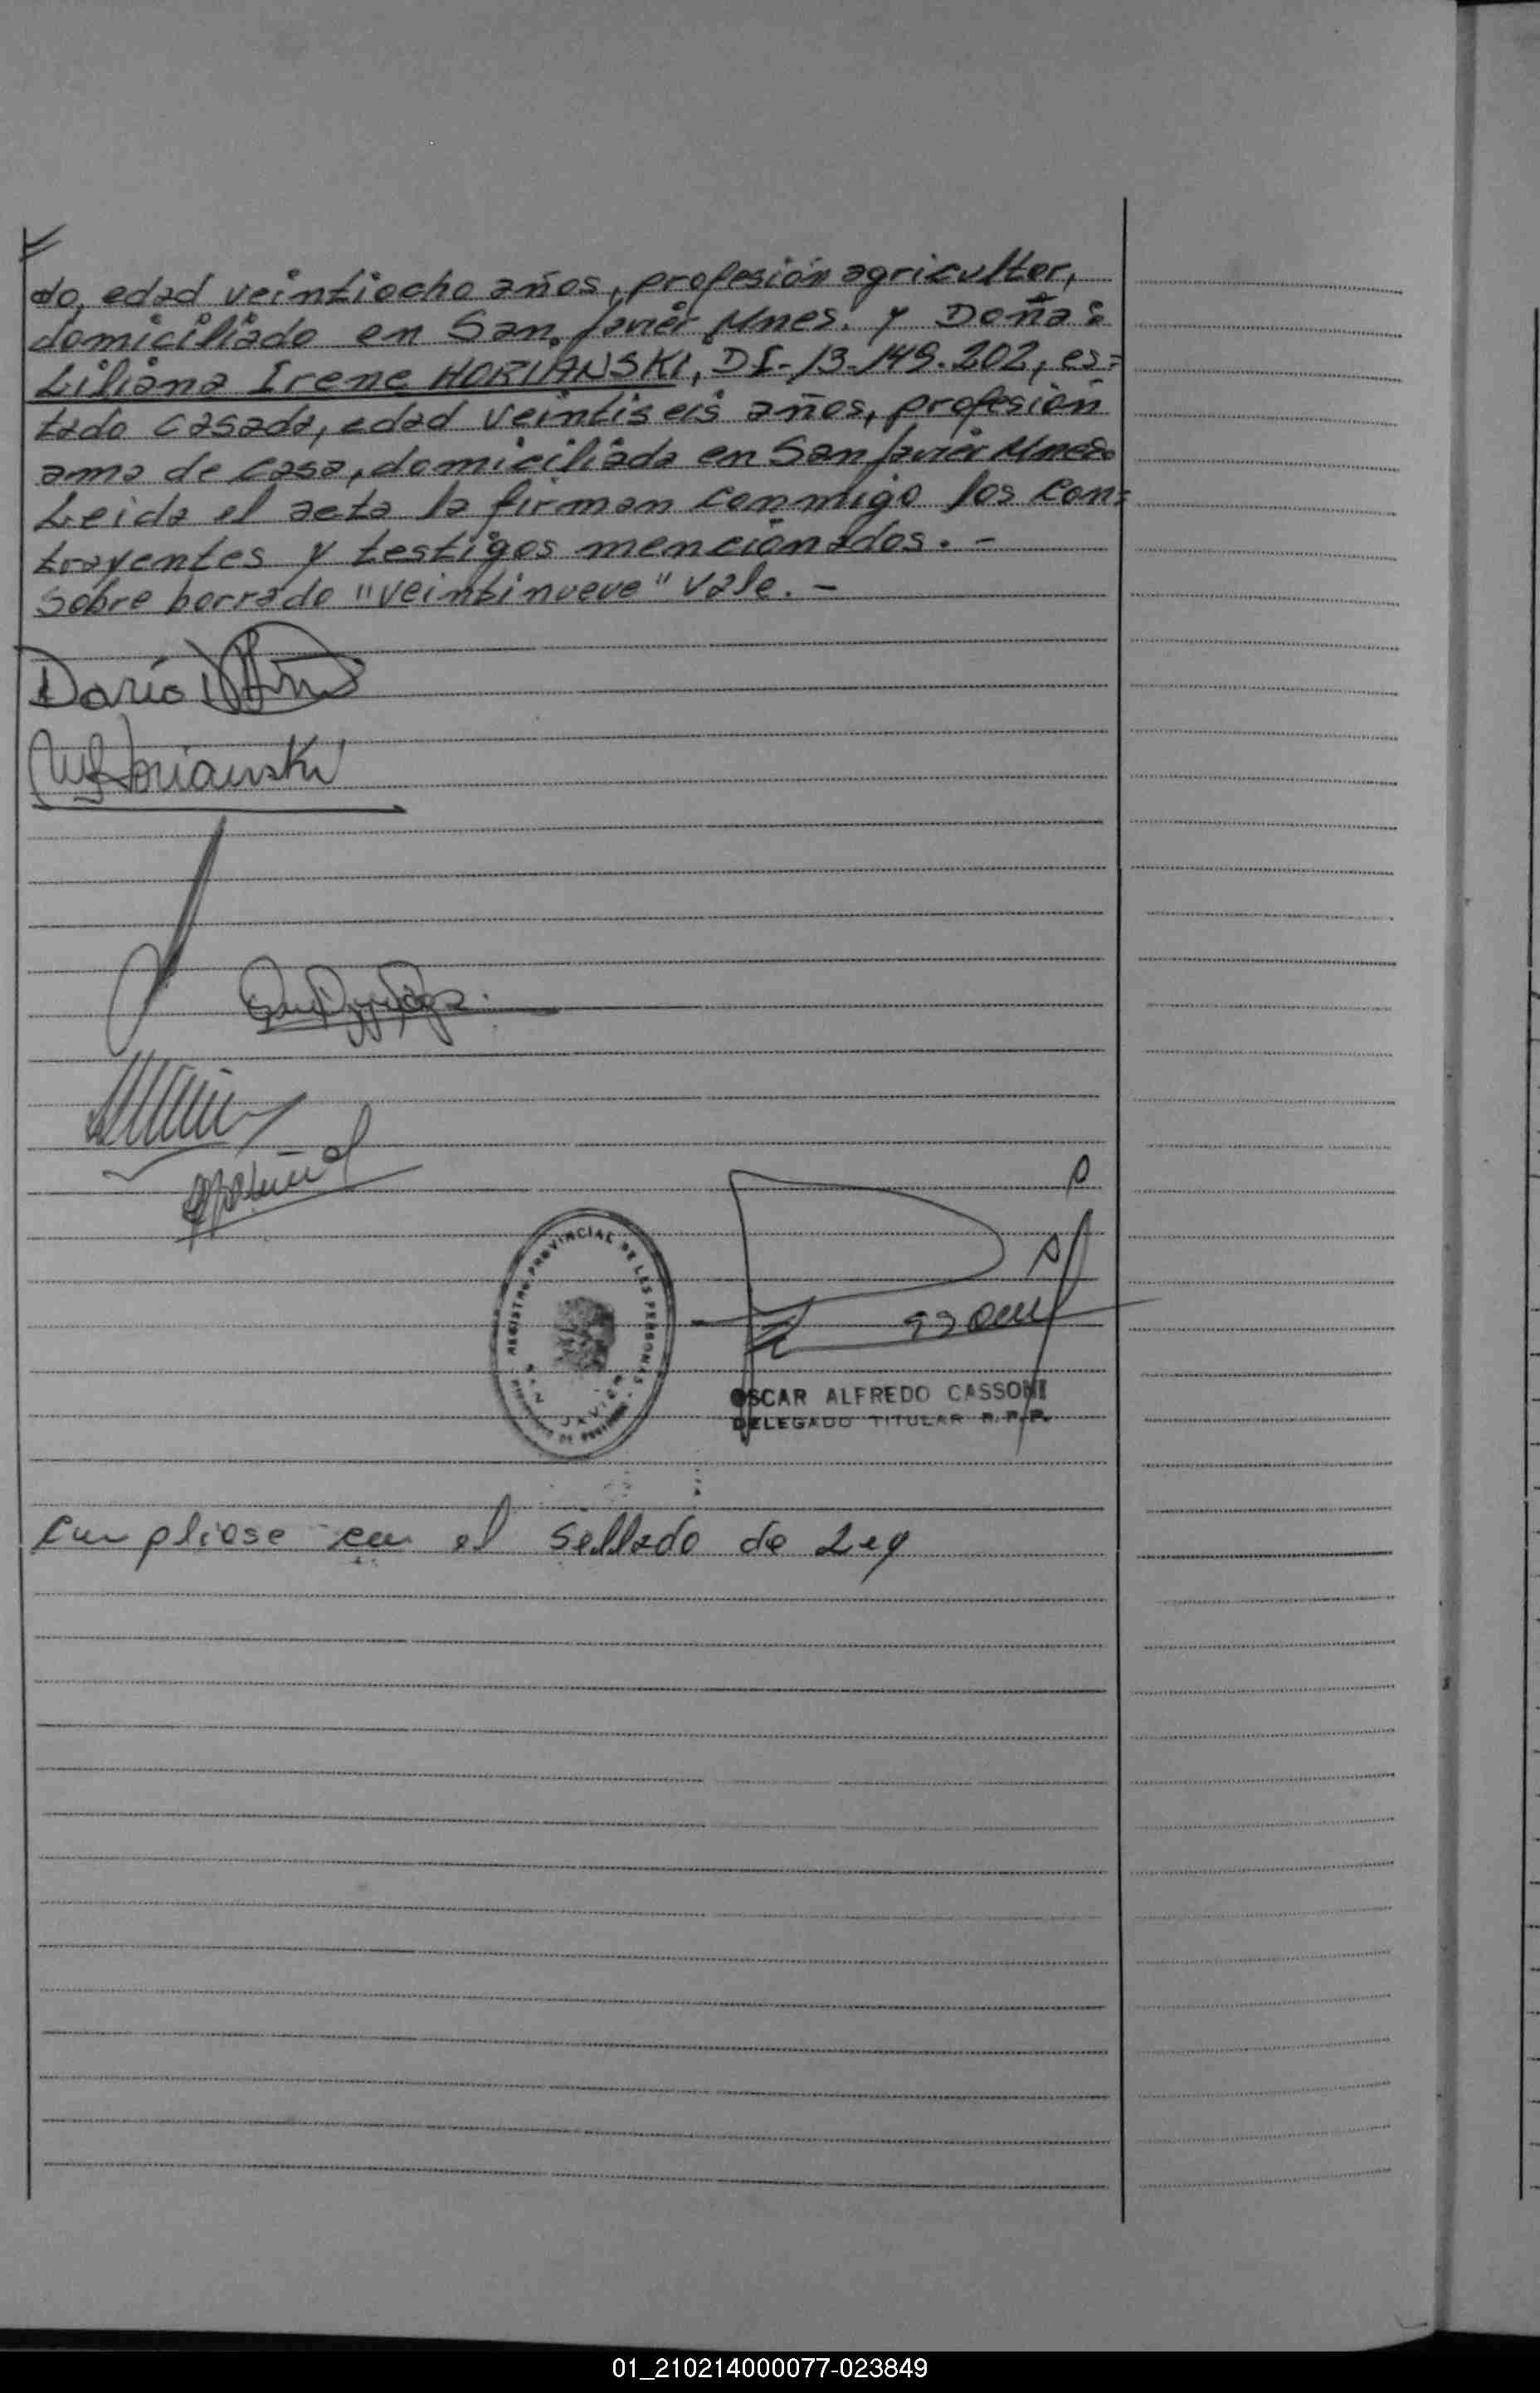 do, edad veintiocho años, profesión agricultor,
domiciliado en San Javier Mnes. y Doña:
Liliana Irene HORIANSKI, DI-13.149.202, es=
tado casada, edad veintiseis años, profesión
ama de casa, domiciliada en San Javier Mnes.
Leida el acta la firman conmigo los con=
trayentes y testigos mencionados. -
Sobre borrado "veintinueve" vale. -
Darío
Horianski
REGISTRO PROVINCIAL DE LES PERSONAS
SAN JAVIER
OSCAR ALFREDO CASSONI
DELEGADO TITULAR R.P.P.
Cumpliose con el Sellado de Ley
01_210214000077-023849